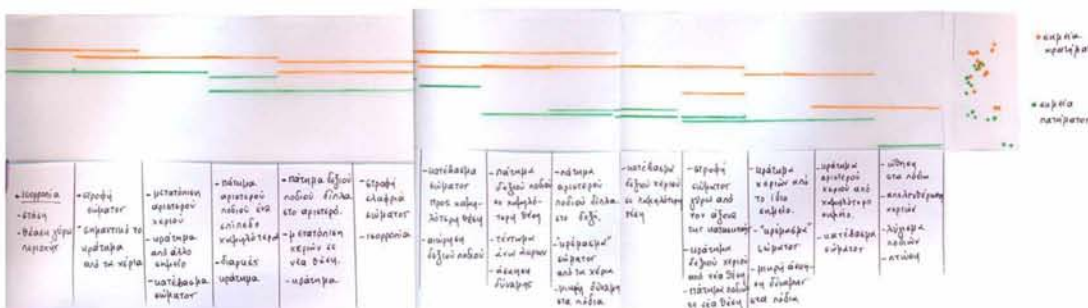 σημεία
κρατήματ
σημεία
πατήματος
- ισορροπία
- στάση
- θέαση γύρω
περιοχής
- στροφή
σώματος
- σημαντικό το
κράτημα
από τα χέρια
- μετατόπιση
αριστερού
χεριού
- κράτημα
από άλλο
σημείο
- κατέβασμα
σώματος
- πάτημα
αριστερού
ποδιού ένα
επίπεδο
χαμηλότερα
- διαρκές
κράτημα
- πάτημα δεξιού
ποδιού δίπλα
στο αριστερό.
- μετατόπιση
χεριών σε
νέα θέση.
- κράτημα
- στροφή
ελαφριά
σώματος
- ισορροπία
- κατέβασμα
σώματος
προς χαμη-
λότερη θέση
- αιώρηση
δεξιού ποδιού
- πάτημα
δεξιού ποδιού
σε χαμηλό-
τερη θέση
- τέντωμα
άνω άκρων
- άσκηση
δύναμης
- πάτημα
αριστερού
ποδιού δίπλα
στο δεξί.
- "κρέμασμα"
σώματος
από τα χέρια
- μικρή δύναμη
στα πόδια
- κατέβασμα
δεξιού χεριού
σε χαμηλότερη
θέση
- στροφή
σώματος
γύρω από
τον άξονα
της κατασκευής
- κράτημα
δεξιού χεριού
από νέα θέση
- πάτημα ποδιού
σε νέα θέση
- κράτημα
χεριών από
το ίδιο
σημείο.
- "κρέμασμα"
σώματος
- μικρή άσκη-
ση δύναμης
στα πόδια
- κράτημα
αριστερού
χεριού από
χαμηλότερο
σημείο.
- κατέβασμα
σώματος
- ώθηση
στα πόδια
- απελευθέρωση
χεριών
- λύγισμα
ποδιών
- πτώση